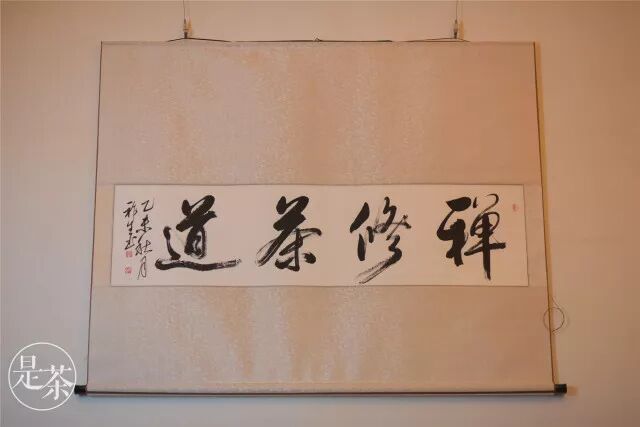 禅修茶道
乙未秋月
是茶